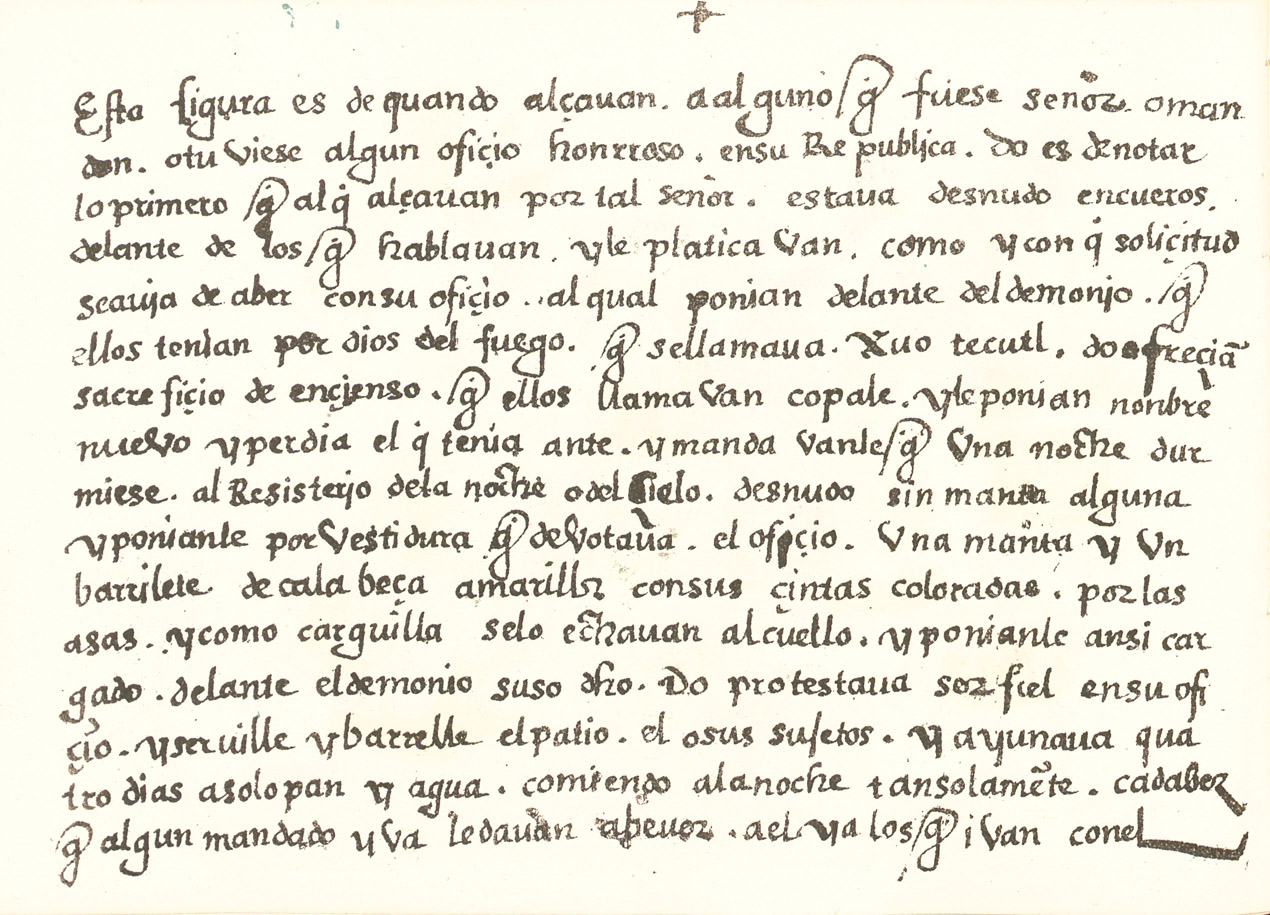 +
Esta figura es de quando alçauan. a alguno q̃ fuese señor. o man
don. o tuviese algun ofiçio honrroso. en su Republica. Do es denotar
lo primero q̃ al q̃ alçauan por tal señor. estaua desnudo en cueros.
delante de los q̃ hablauan. y le platicavan. como y con q̃ soliçitud
se auja de aber con su ofiçio. . al qual ponian delante del demonjo. q̃
ellos tenian por dios del fuego. q̃ se llamaua. Xuo tecutl. do ofreciã
sacrefiçio de ençienso. q̃ ellos llamavan copale. y le ponian nonbre
nuevo y perdia el q̃ tenia ante. y mandavanle q̃ vna noche dur
miese. al Resisterjo dela noche o del sielo. desnudo sin manta alguna
y poniante por vestidura q̃ devotaua. el ofiçio. vna manta y vn
barrilete de calabeça amarillo consus çintas coloradas. por las
asas. y como carguilla selo echauan al cuello. y poniante ansi car
gado. delante el demonio suso dho. Do protestaua ser fiel en su ofi
çio. y seruille y barrelle el patio. el o sus sujetos. y ayunaua qua
tro dias a solo pan y agua. comiendo a la noche tan solamẽte. cada bez
q̃ algun mandado yva le dauan abever. a el y a los q̃ ivan con el